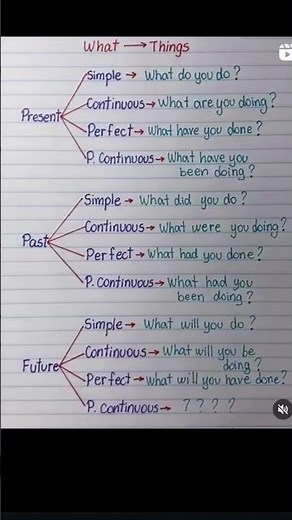 What → Things
Simple → What do you do?
Continuous → What are you doing?
Present
Perfect → What have you done?
P. Continuous → What have you
been doing?
Simple → What did you do?
Continuous → What were you doing?
Past
Perfect → What had you done?
P. Continuous → What had you
been doing?
Simple → What will you do?
Continuous → What will you be
doing?
Future
Perfect → What will you have done?
P. Continuous → ? ? ? ?